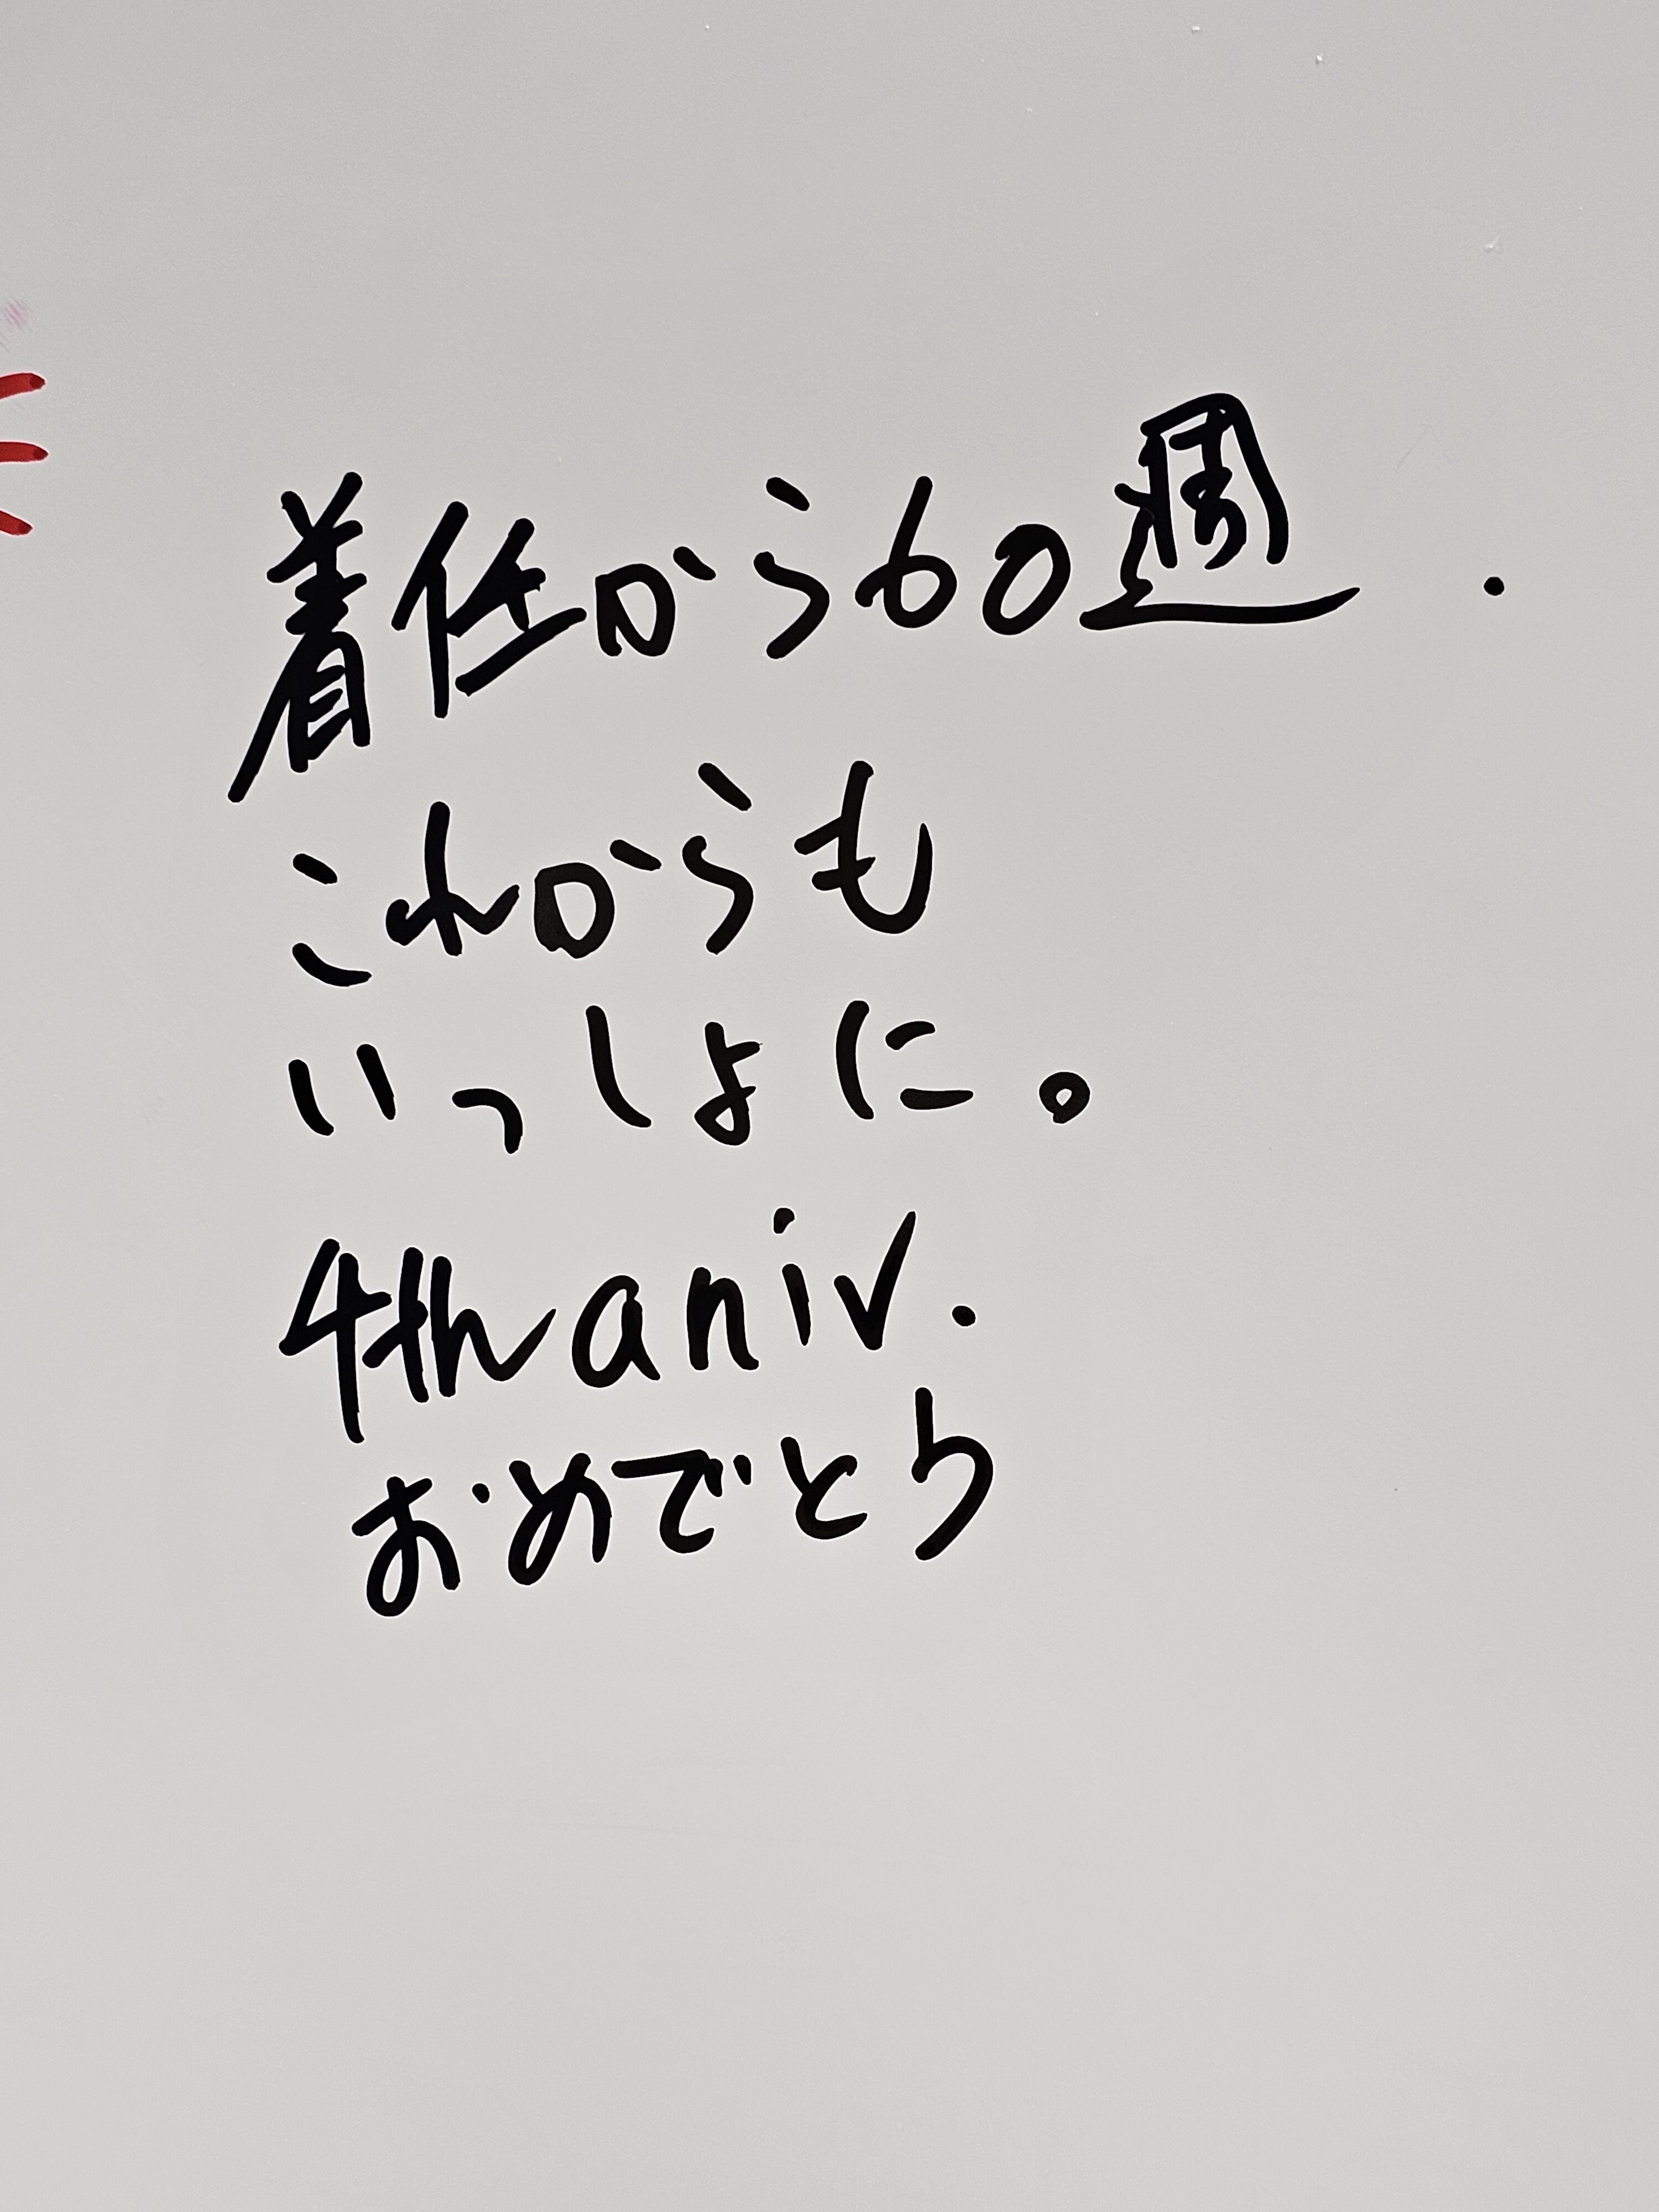 着任から60週.
これからも
いっしょに。
4th aniv.
おめでとう